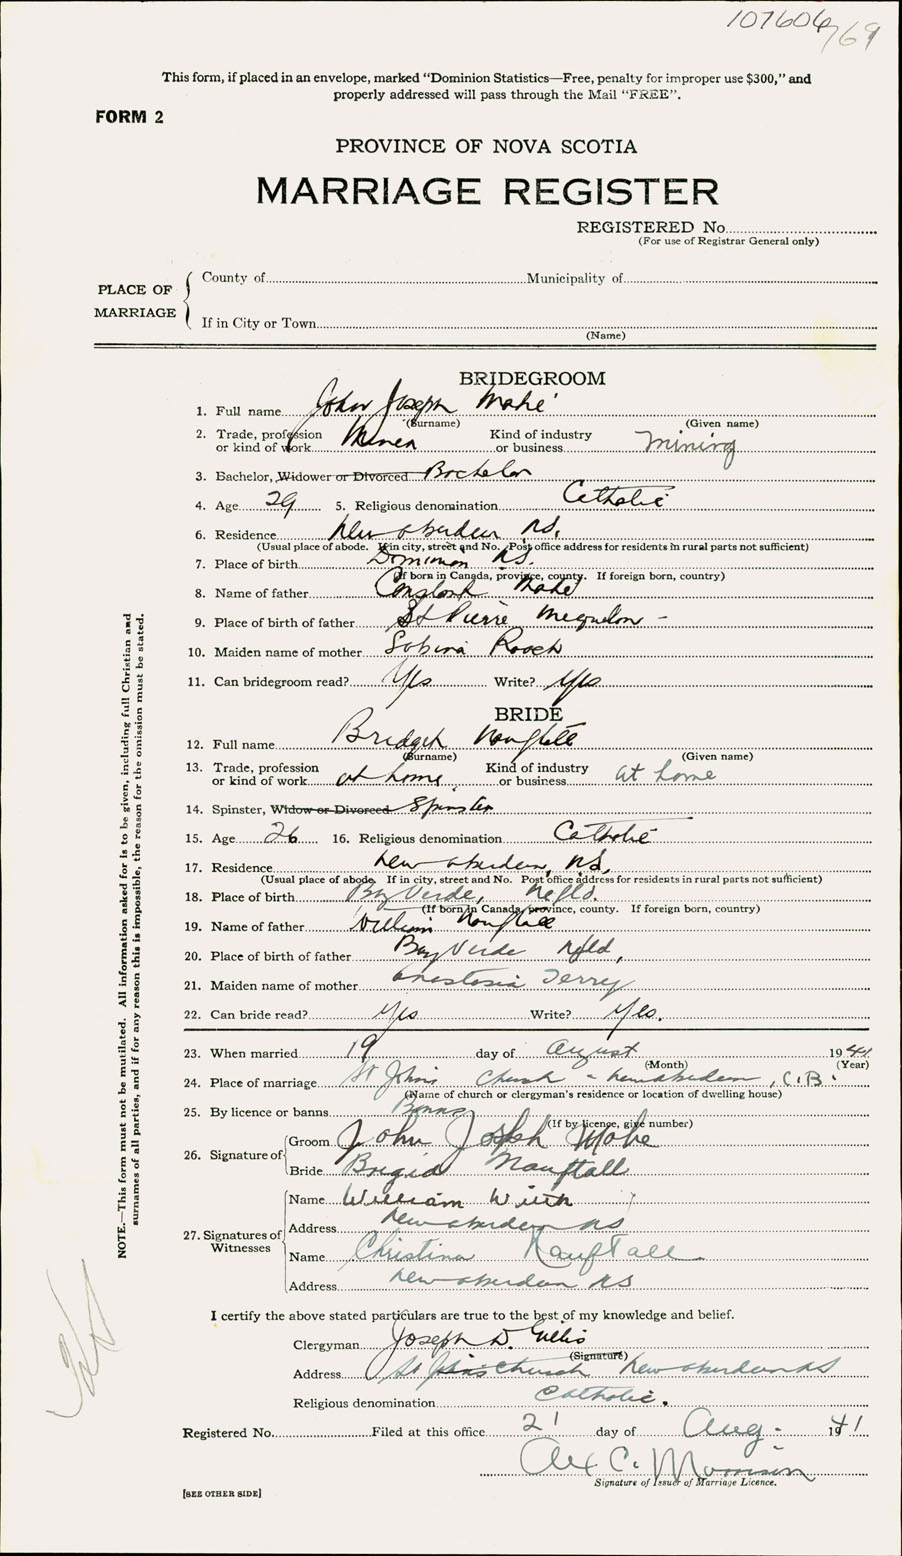 107606 769
This form, if placed in an envelope, marked “Dominion Statistics—Free, penalty for improper use $300,” and
properly addressed will pass through the Mail “FREE”.
FORM 2
PROVINCE OF NOVA SCOTIA
MARRIAGE REGISTER
REGISTERED No.
(For use of Registrar General only)
PLACE OF MARRIAGE
County of Municipality of
If in City or Town
(Name)
BRIDEGROOM
1. Full name John Joseph Mahé
(Surname) (Given name)
2. Trade, profession or kind of work Miner Kind of industry or business mining
3. Bachelor, Widower or Divorced Bachelor
4. Age 29 5. Religious denomination Catholic
6. Residence New Aberdeen NS.
(Usual place of abode. If in city, street and No. Post office address for residents in rural parts not sufficient)
7. Place of birth Dominion NS.
(If born in Canada, province, county. If foreign born, country)
8. Name of father Mahe
9. Place of birth of father St Pierre Mequelon -
10. Maiden name of mother Sobina Roach
11. Can bridegroom read? Yes Write? Yes
BRIDE
12. Full name
(Surname) (Given name)
13. Trade, profession or kind of work at home Kind of industry or business at home
14. Spinster, Widow or Divorced Spinster
15. Age 26 16. Religious denomination Catholic
17. Residence New Aberdeen, NS,
(Usual place of abode. If in city, street and No. Post office address for residents in rural parts not sufficient)
18. Place of birth Bay Verde, Nfld.
(If born in Canada, province, county. If foreign born, country)
19. Name of father William
20. Place of birth of father Bay Verde Nfld,
21. Maiden name of mother Anastasia Terry
22. Can bride read? Yes Write? Yes.
23. When married 19 day of August 1941
(Month) (Year)
24. Place of marriage St John's Church - New Aberdeen, C.B.
(Name of church or clergyman's residence or location of dwelling house)
25. By licence or banns Banns
(If by licence, give number)
26. Signature of Groom John Joseph Mahe
Bride Brigid Nauftall
27. Signatures of Witnesses
Name William
Address New Aberdeen NS
Name Christina Nauftall
Address New Aberdeen NS
I certify the above stated particulars are true to the best of my knowledge and belief.
Clergyman Joseph D. Gillis
(Signature)
Address St John's Church New Aberdeen NS
Religious denomination Catholic.
Registered No. Filed at this office 21 day of Aug. 1941
Alex C. Morrison
Signature of Issuer of Marriage Licence.
[SEE OTHER SIDE]
NOTE.—This form must not be mutilated. All information asked for is to be given, including full Christian and
surnames of all parties, and if for any reason this is impossible, the reason for the omission must be stated.